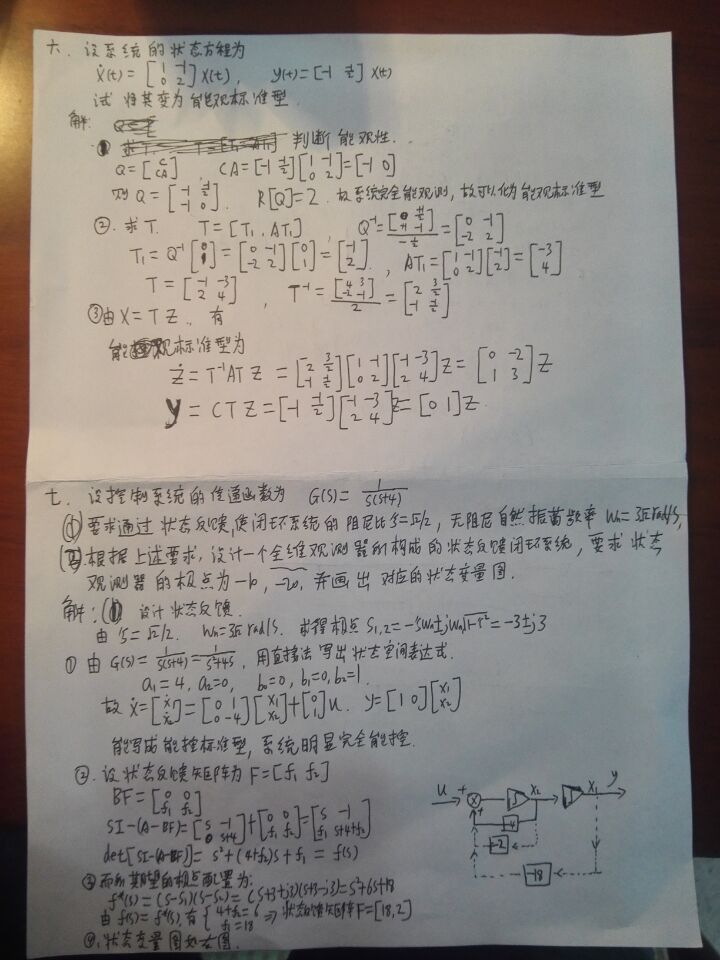 六、设系统的状态方程为
ẋ(t) = [1 -1; 0 2] x(t), y(t) = [-1 ½] x(t)
试将其变为能观标准型.
解:
① 判断能观性.
Q = [C; CA], CA = [-1 -½][1 -1; 0 2] = [-1 0]
则 Q = [-1 -½; -1 0]. R[Q] = 2. 故系统完全能观测, 故可以化为能观标准型
②. 求T. T = [T₁, AT₁], Q⁻¹ = [0 ½; +1 -1] / -½ = [0 -1; -2 2]
T₁ = Q⁻¹[0; 1] = [0 -1; -2 2][0; 1] = [-1; 2], AT₁ = [1 -1; 0 2][-1; 2] = [-3; 4]
T = [-1 -3; 2 4], T⁻¹ = [4 3; -2 -1] / 2 = [2 3/2; -1 -½]
③由 X = TZ, 有
能观标准型为
Ż = T⁻¹AT Z = [2 3/2; -1 -½][1 -1; 0 2][-1 -3; 2 4] Z = [0 -2; 1 3] Z
y = CTZ = [-1 -½][-1 -3; 2 4] Z = [0 1] Z.
七、设控制系统的传递函数为 G(s) = 1/s(s+4)
(1) 要求通过状态反馈,使闭环系统的阻尼比ξ=√2/2, 无阻尼自然振荡频率 Wn = 3√2 rad/s,
(2) 根据上述要求, 设计一个全维观测器所构成的状态反馈闭环系统, 要求状态
观测器的极点为-10, -20, 并画出对应的状态变量图.
解: (1) 设计状态反馈.
由 ξ=√2/2. Wn = 3√2 rad/s. 求得极点 S₁,₂ = -ξWn±jWn√1-ξ² = -3±j3
① 由 G(s) = 1/s(s+4) = 1/s²+4s, 用直接法写出状态空间表达式.
a₁ = 4, a₂ = 0, b₀ = 0, b₁ = 0, b₂ = 1.
故 ẋ = [ẋ₁; ẋ₂] = [0 1; 0 -4][x₁; x₂] + [0; 1] u. y = [1 0][x₁; x₂]
能写成能控标准型, 系统明显完全能控.
②. 设状态反馈矩阵为 F = [f₁ f₂]
BF = [0 0; f₁ f₂]
SI-(A-BF) = [s -1; 0 s+4] + [0 0; f₁ f₂] = [s -1; f₁ s+4+f₂]
det[SI-(A-BF)] = s²+(4+f₂)s+f₁ = f(s)
③ 而所期望的极点配置为:
f*(s) = (s-s₁)(s-s₂) = (s+3+j3)(s+3-j3) = s²+6s+18
由 f(s) = f*(s), 有 { 4+f₂ = 6; f₁ = 18 ⇒ 状态反馈矩阵 F = [18, 2]
④. 状态变量图如右图.
u + + x₂ x₁ y
-4
-2
-18